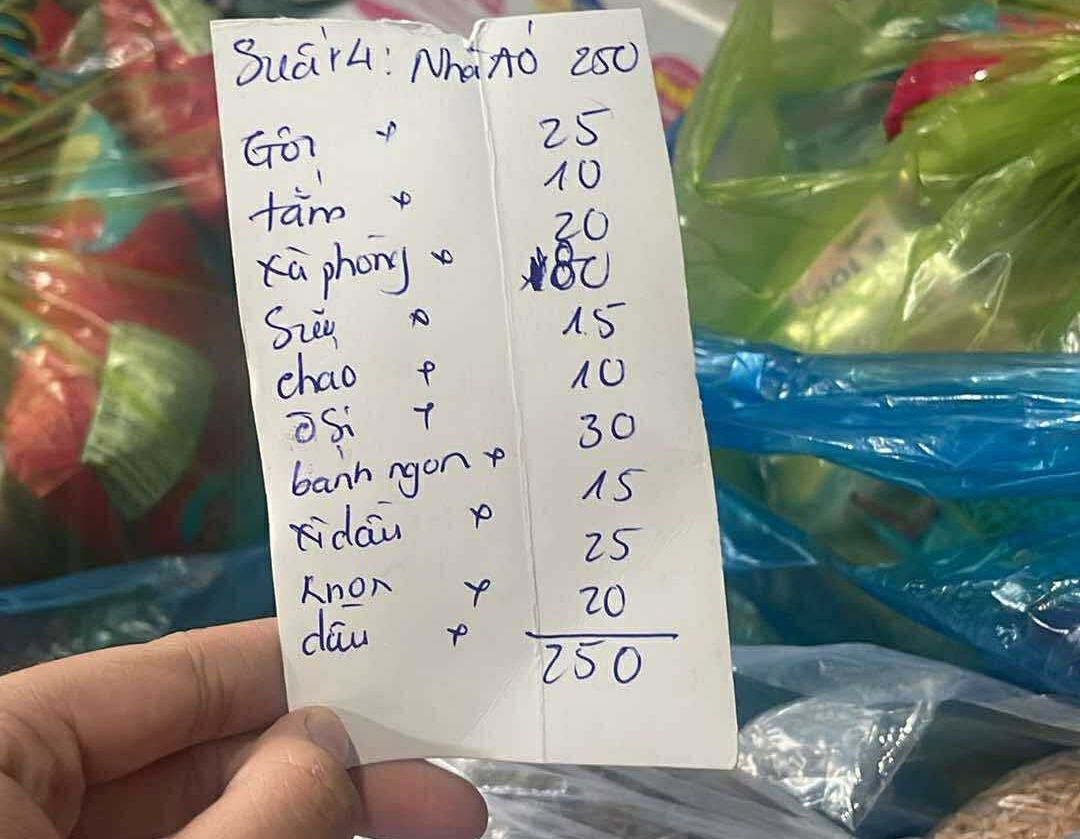 Suất 4: Nhà Aó 250
Gội + 25
tắm + 10
xà phòng + 20
Sữa + 80
chao + 15
ô Si + 10
bánh ngon + 30
xì dầu + 15
knor + 25
dầu + 20
250